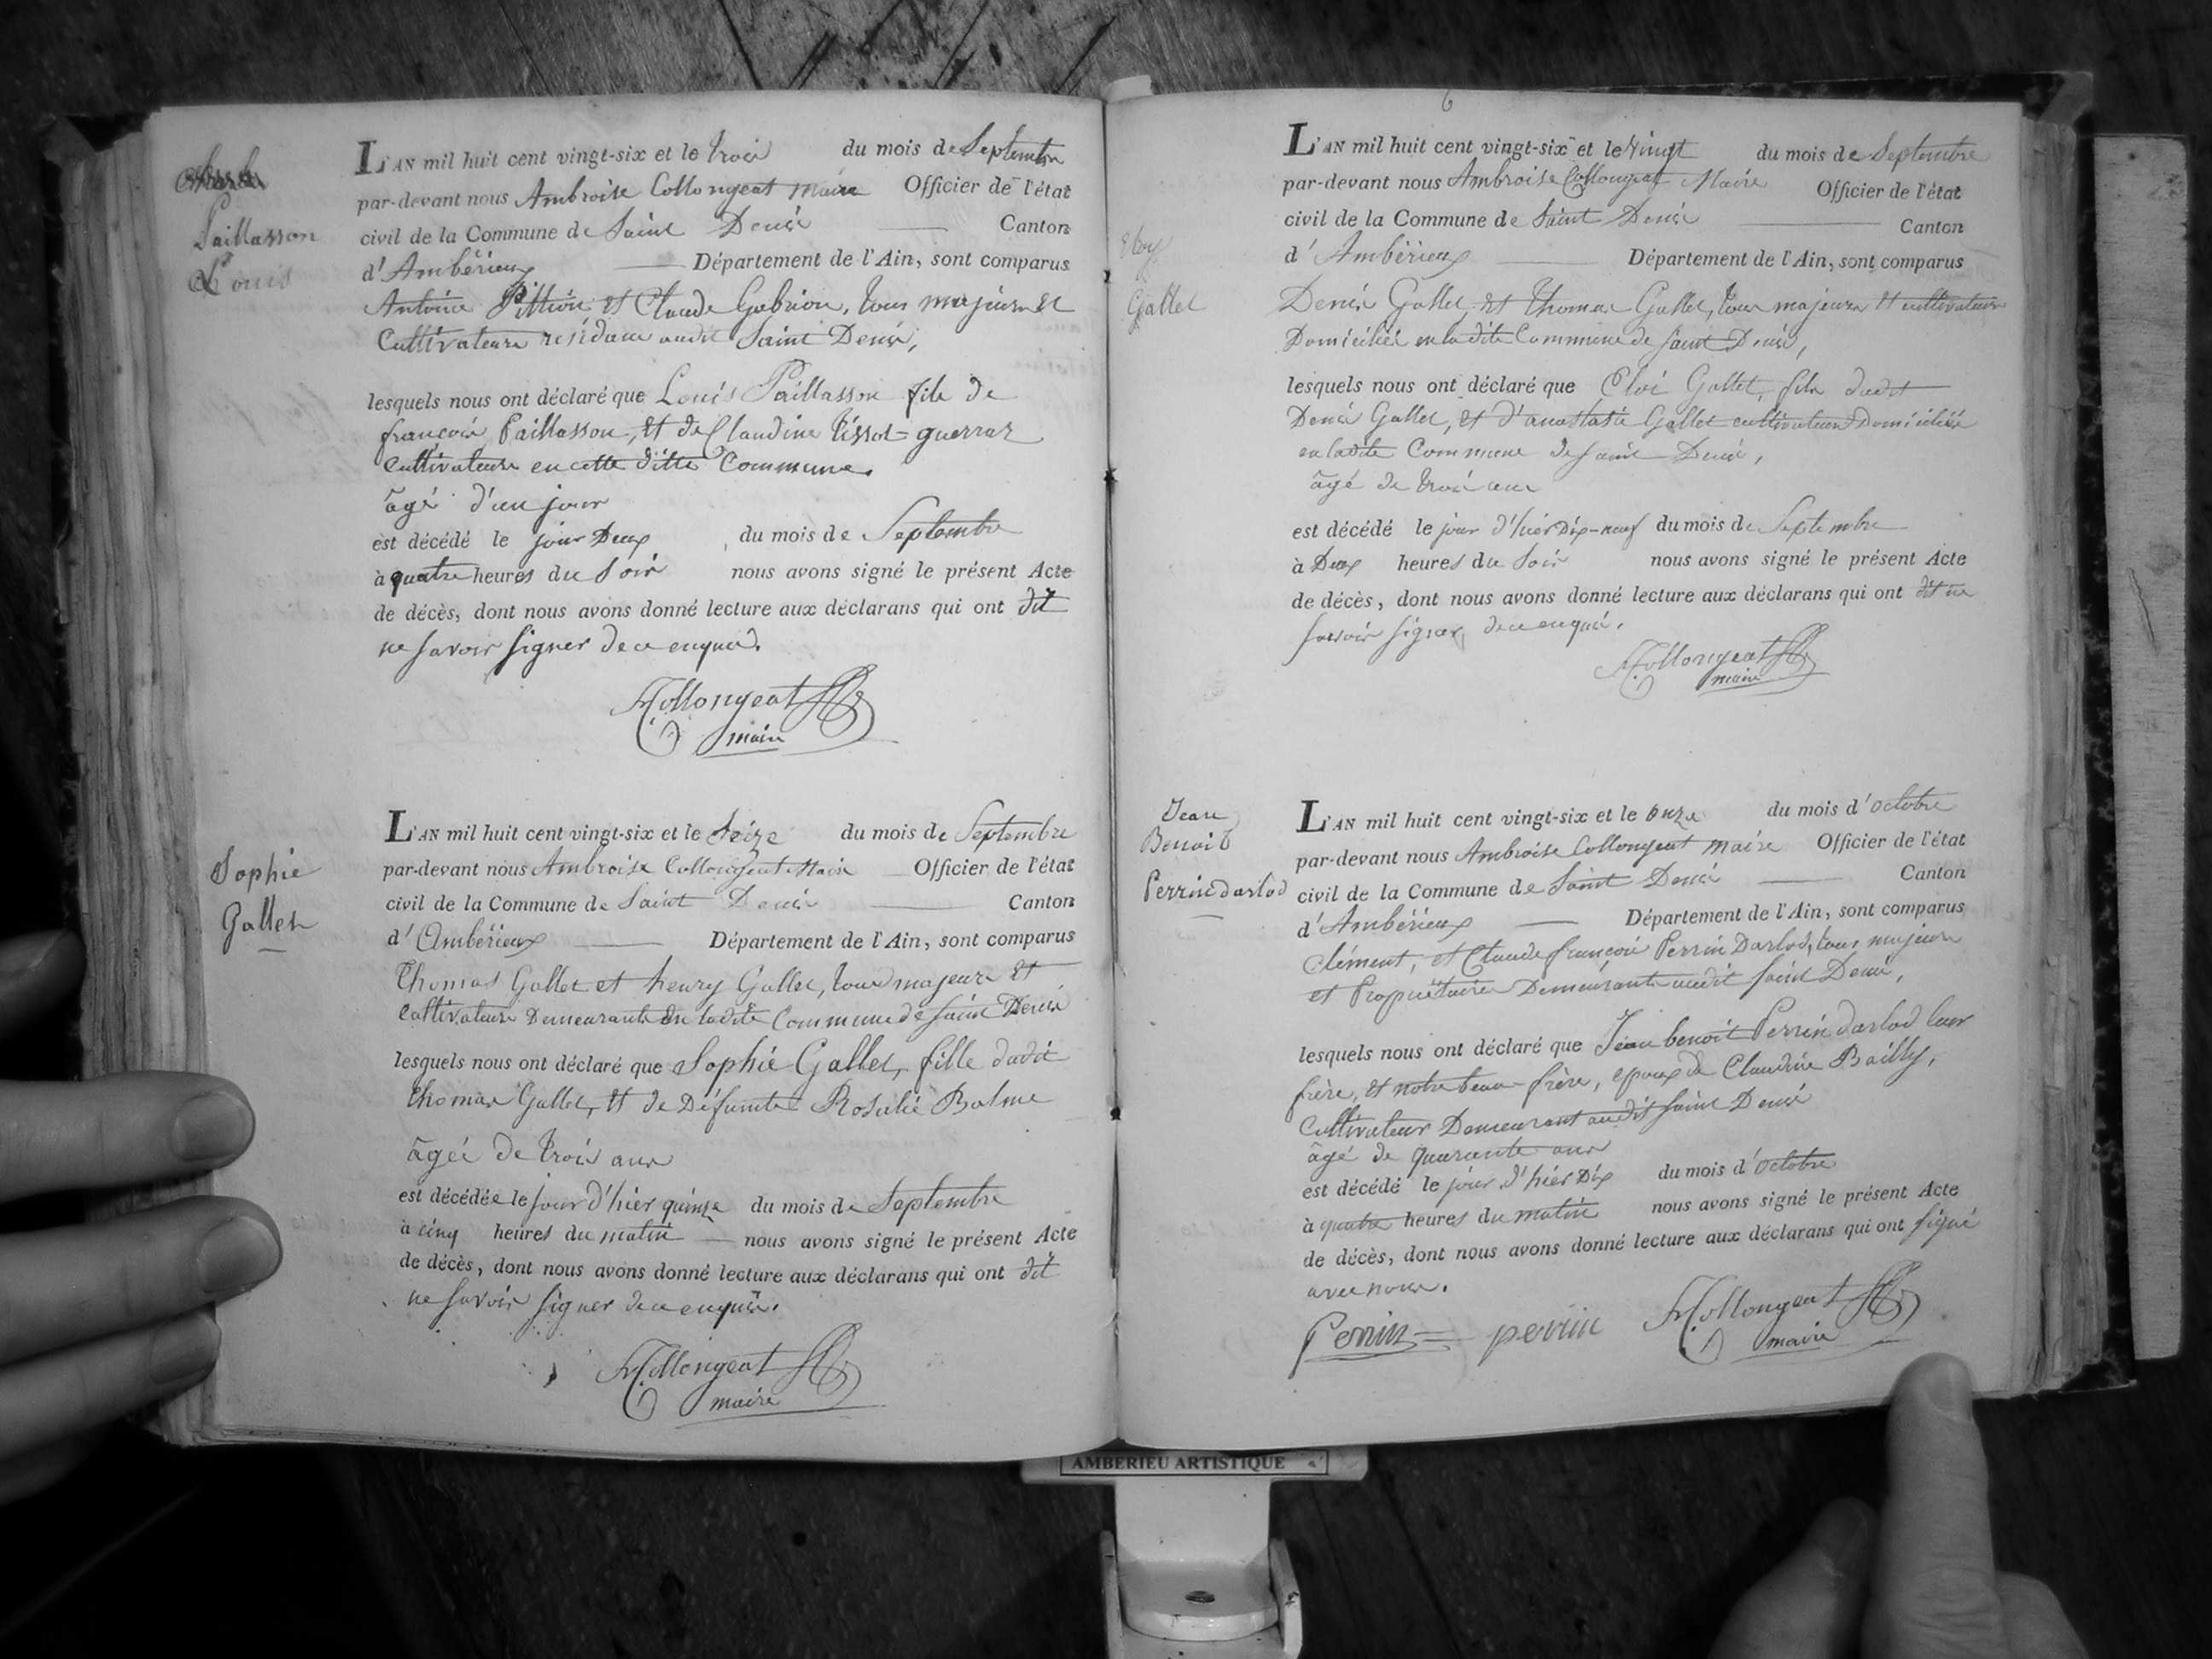 Paillasson
Louis
L'AN mil huit cent vingt-six et le trois du mois de Septembre
par-devant nous Ambroise Collongeat Maire Officier de l'état
civil de la Commune de Saint Denis Canton
d'Ambérieux Département de l'Ain, sont comparus
Antoine et Claude Gabrion, tous majeurs et
Cultivateurs résidans audit Saint Denis,
lesquels nous ont déclaré que Louis Paillasson fils de
françois Paillasson, et de Claudine Tissot=guerraz
Cultivateurs en cette ditte Commune.
âgé d'un jour
est décédé le jour Deux du mois de Septembre
à quatre heures du Soir nous avons signé le présent Acte
de décès, dont nous avons donné lecture aux déclarans qui ont dit
ne savoir signer de ce enquis.
Collongeat
maire
Sophie
Gallet
L'AN mil huit cent vingt-six et le Seize du mois de Septembre
par-devant nous Ambroise Collongeat Maire Officier de l'état
civil de la Commune de Saint Denis Canton
d'Ambérieux Département de l'Ain, sont comparus
Thomas Gallet et henry Gallet, tous majeurs et
Cultivateurs Demeurants en ladite Commune de Saint Denis
lesquels nous ont déclaré que Sophie Gallet, fille dudit
thomas Gallet, et de Défunte Rosalie Balme
âgée de trois ans
est décédée le jour d'hier quinze du mois de Septembre
à cinq heures du matin nous avons signé le présent Acte
de décès, dont nous avons donné lecture aux déclarans qui ont dit
ne savoir signer de ce enquis.
Collongeat
maire
6
Eloy
Gallet
L'AN mil huit cent vingt-six et le vingt du mois de Septembre
par-devant nous Ambroise Collongeat Maire Officier de l'état
civil de la Commune de Saint Denis Canton
d'Ambérieux Département de l'Ain, sont comparus
Denis Gallet, et thomas Gallet, tous majeurs et cultivateurs
Domiciliés en la dite Commune de Saint Denis,
lesquels nous ont déclaré que Eloi Gallet, fils dudit
Denis Gallet, et d'anastasie Gallet cultivateurs Domiciliés
en ladite Commune de Saint Denis,
âgé de trois ans
est décédé le jour d'hier Dix-neuf du mois de Septembre
à Deux heures du Soir nous avons signé le présent Acte
de décès, dont nous avons donné lecture aux déclarans qui ont dit ne
savoir signer, de ce enquis.
Collongeat
maire
Jean
Benoit
Perrin darlod
L'AN mil huit cent vingt-six et le onze du mois d'octobre
par-devant nous Ambroise Collongeat maire Officier de l'état
civil de la Commune de Saint Denis Canton
d'Ambérieux Département de l'Ain, sont comparus
Clément, et Claude françois Perrin Darlod, tous majeurs
et Propriétaires Demeurants audit Saint Denis,
lesquels nous ont déclaré que Jean benoit Perrin darlod leur
frère, et notre beau-frère, époux de Claudine Bailly,
Cultivateur Demeurant audit Saint Denis
âgé de quarante ans
est décédé le jour d'hier Dix du mois d'octobre
à quatre heures du matin nous avons signé le présent Acte
de décès, dont nous avons donné lecture aux déclarans qui ont signé
avec nous.
Perrin perrin Collongeat
maire
AMBERIEU ARTISTIQUE